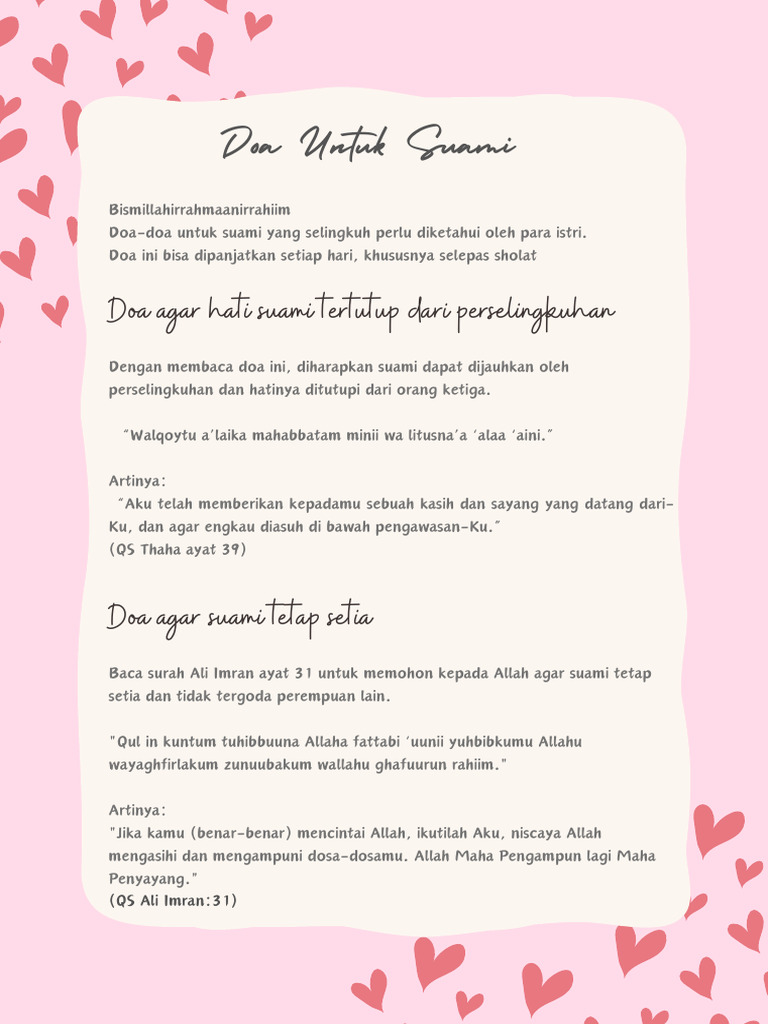 Doa Untuk Suami
Bismillahirrahmaanirrahiim
Doa-doa untuk suami yang selingkuh perlu diketahui oleh para istri.
Doa ini bisa dipanjatkan setiap hari, khususnya selepas sholat
Doa agar hati suami tertutup dari perselingkuhan
Dengan membaca doa ini, diharapkan suami dapat dijauhkan oleh
perselingkuhan dan hatinya ditutupi dari orang ketiga.
“Walqoytu a’laika mahabbatam minii wa litusna’a ‘alaa ‘aini.”
Artinya:
“Aku telah memberikan kepadamu sebuah kasih dan sayang yang datang dari-
Ku, dan agar engkau diasuh di bawah pengawasan-Ku.”
(QS Thaha ayat 39)
Doa agar suami tetap setia
Baca surah Ali Imran ayat 31 untuk memohon kepada Allah agar suami tetap
setia dan tidak tergoda perempuan lain.
"Qul in kuntum tuhibbuuna Allaha fattabi ‘uunii yuhbibkumu Allahu
wayaghfirlakum zunuubakum wallahu ghafuurun rahiim."
Artinya:
"Jika kamu (benar-benar) mencintai Allah, ikutilah Aku, niscaya Allah
mengasihi dan mengampuni dosa-dosamu. Allah Maha Pengampun lagi Maha
Penyayang."
(QS Ali Imran:31)